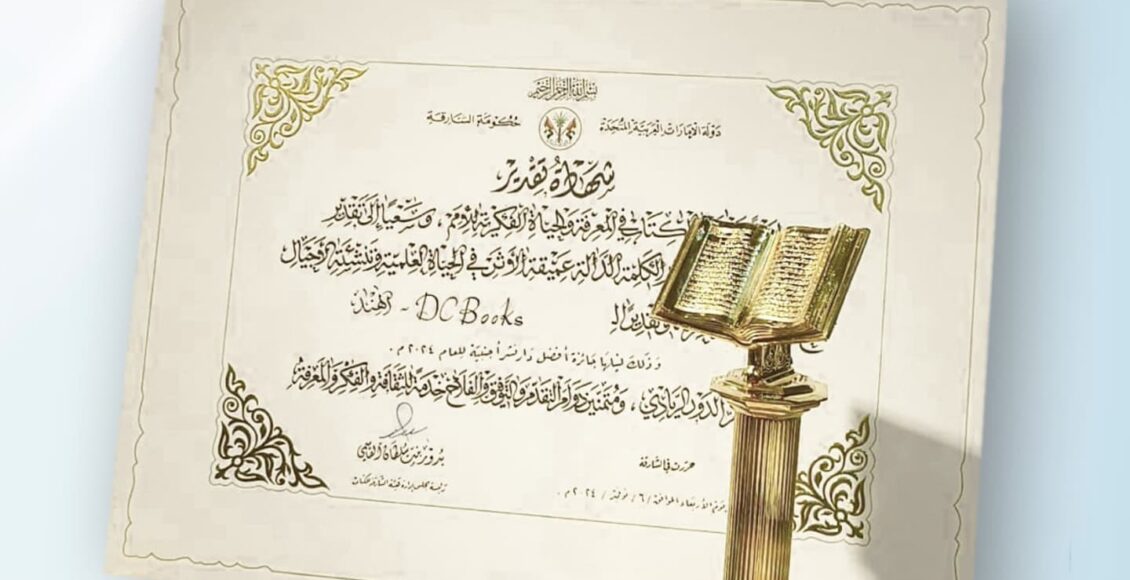 بسم الله الرحمن الرحيم
دولة الإمارات العربية المتحدة
حكومة الشارقة
شهادة تقدير
في المعرفة والحياة الفكرية للأمم ، وسعيًا إلى تقدير
الكلمة الدالة عميقة الأثر في الحياة العلمية وتنشئة الأجيال
وتقدير
DC Books - الهند
وذلك لنيلها جائزة أفضل دار نشر أجنبية للعام ٢٠٢٤م.
الدور الريادي ، ومتمنين دوام التقدم والتوفيق والفلاح خدمة للثقافة والفكر والمعرفة
حررت في الشارقة
يوم الأربعاء الموافق ٦ / نوفمبر / ٢٠٢٤م.
بدور بنت سلطان القاسمي
رئيسة مجلس إدارة هيئة الشارقة للكتاب